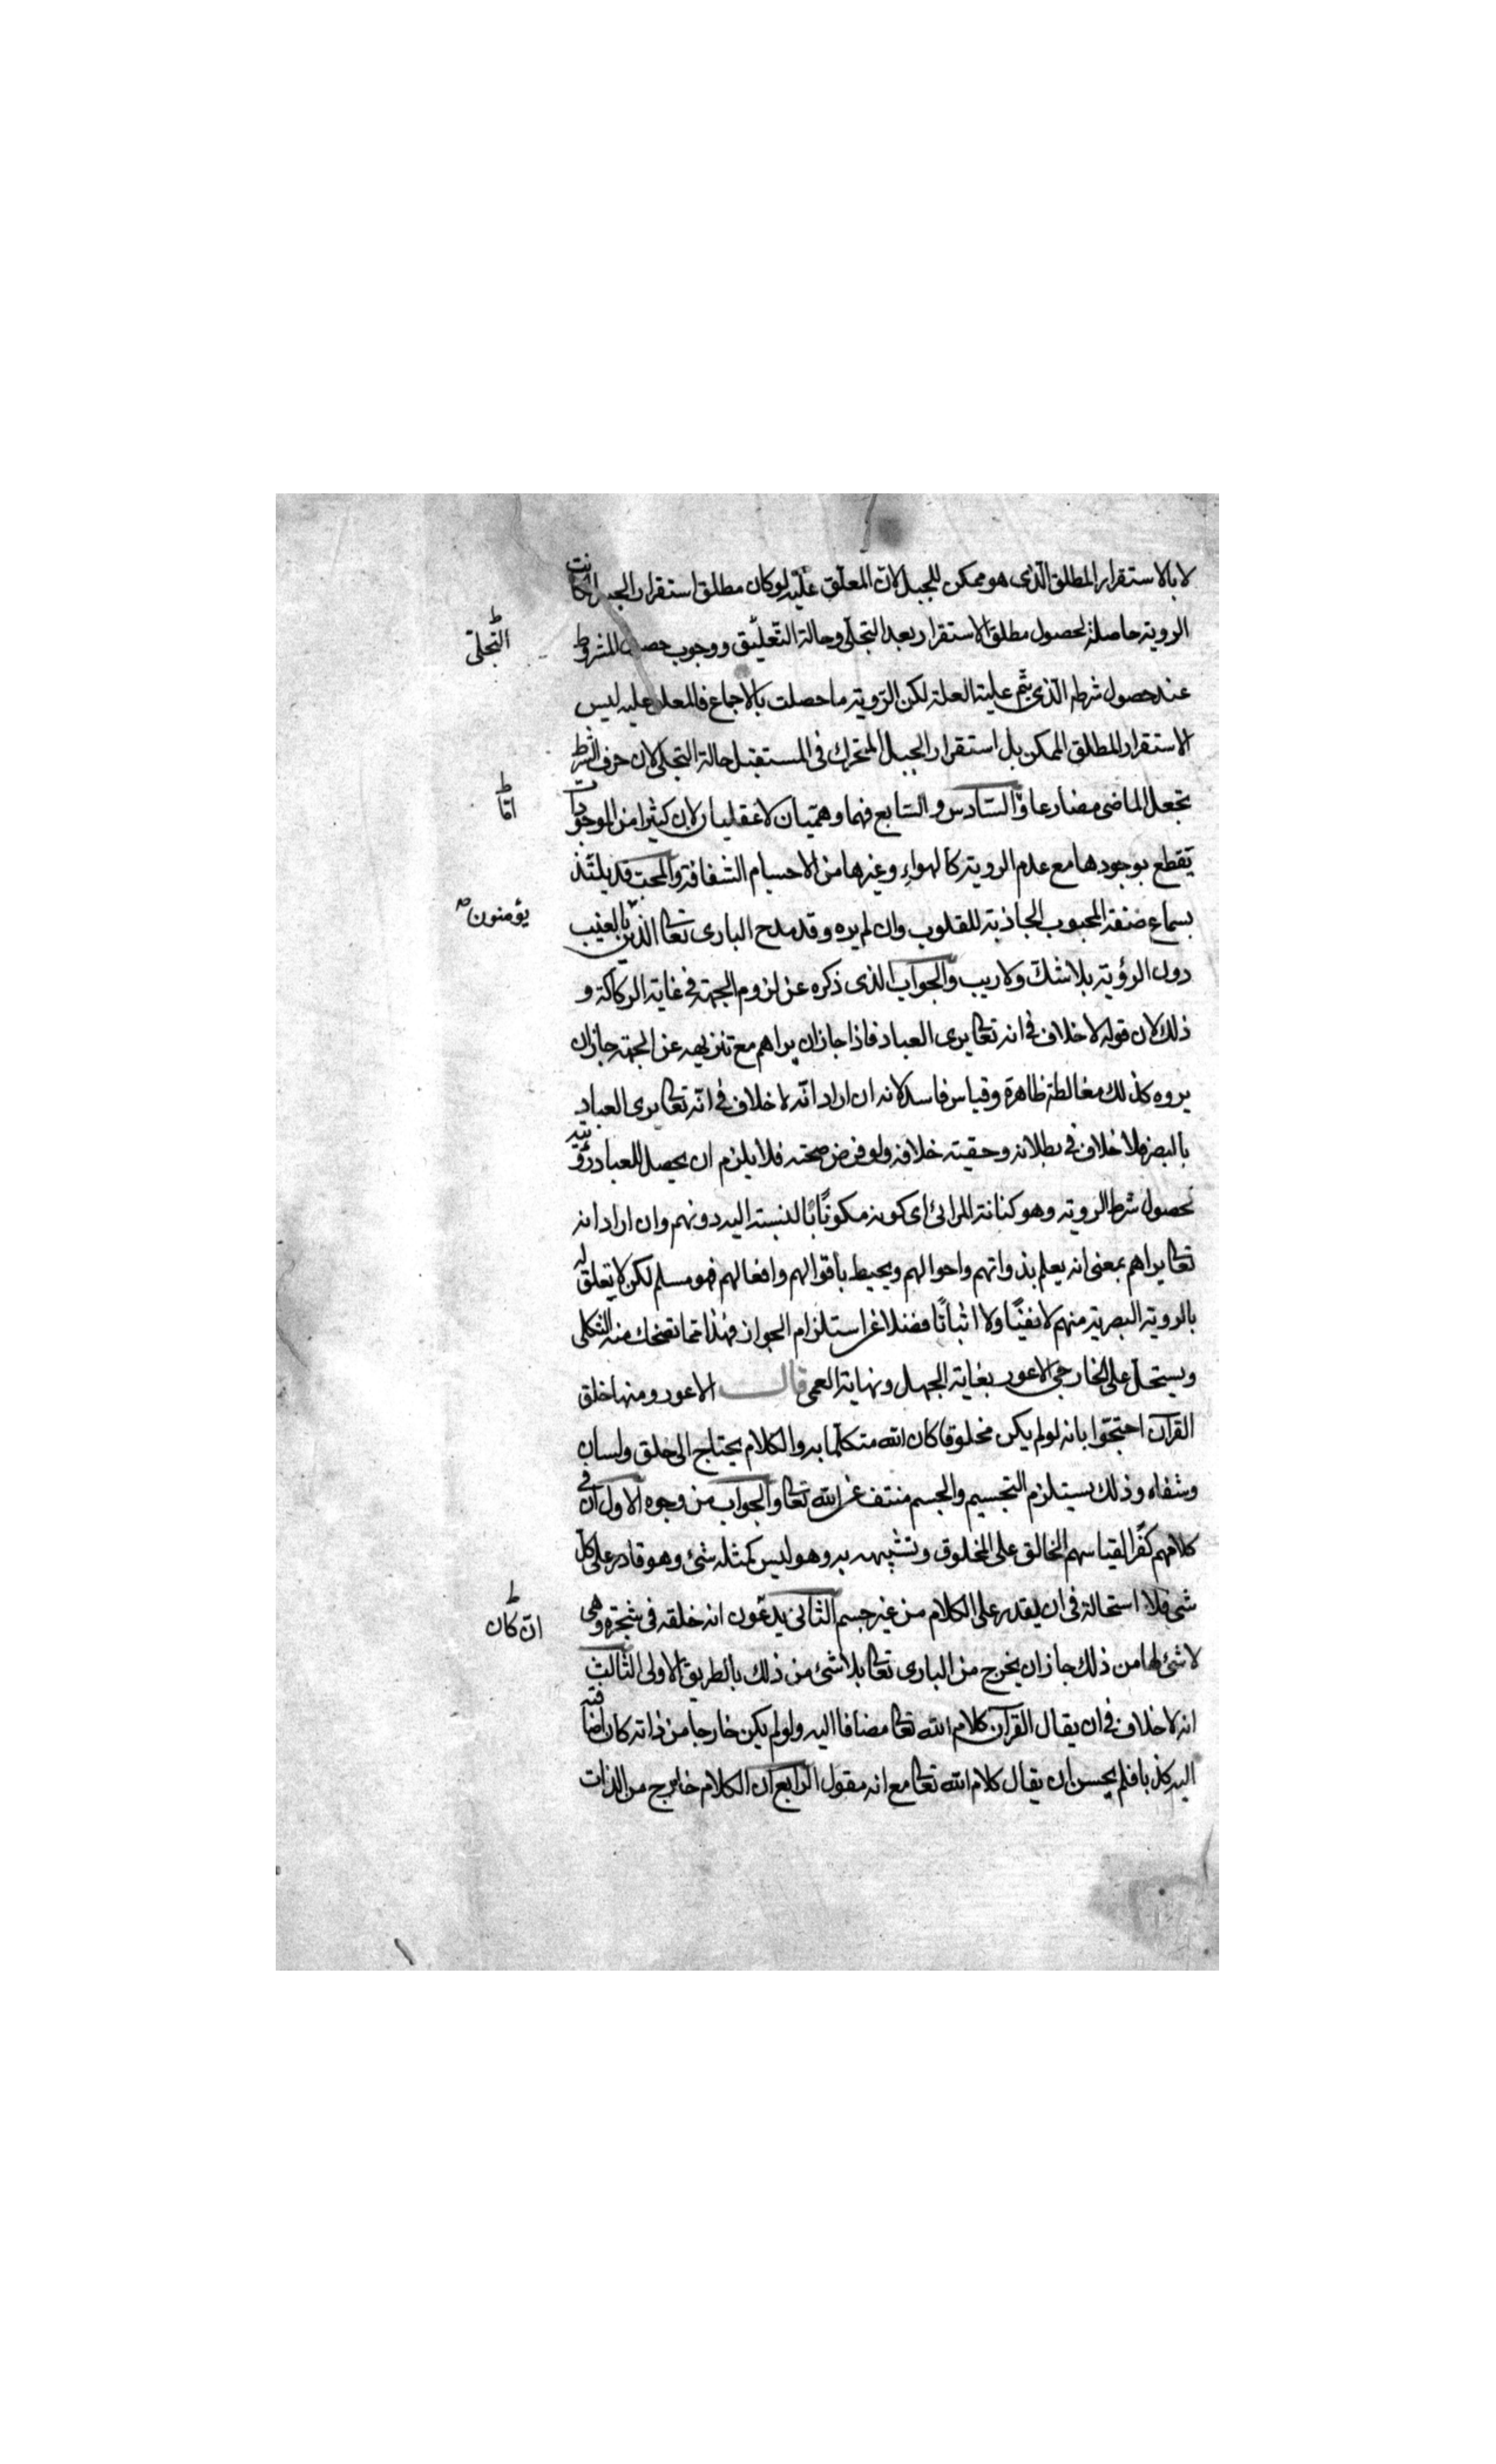 لا بالاستقرار المطلق الذى هو ممكن للجبل لان المعلق عليه لو كان مطلق استقرار الجبل لكانت
الروية حاصلة لحصول مطلق الاستقرار بعد التجلى وحالة التعليق ووجوب حصول المشروط
التجلى
عند حصول شرطه الذى يتم علية العلة لكن الروية ما حصلت بالاجماع فالمعلق عليه ليس
الاستقرار المطلق الممكن بل استقرار الجبل المتحرك فى المستقبل حالة التجلى لان حرف الشرط
يجعل الماضى مضارعا و السادس و السابع فهما وهميان لا عقليان لان كثيرا من الموجودات
اما
تقطع بوجودها مع عدم الروية كالهواء وغيرها من الاجسام الشفافة والمحب قد يلتذ
بسماع صفة المحبوب الجاذبة للقلوب وان لم يره وقد مدح البارى تعا الذين بالغيب
يؤمنون صح
دون الرؤية بلا شك ولا ريب والجواب الذى ذكره عن لزوم الجهة فى غاية الركاكة و
ذلك لان قوله لا خلاف فى انه تعا يرى العباد فاذا جاز ان يراهم مع تنزيهه عن الجهة جاز ان
يروه كذلك مغالطة ظاهرة وقياس فاسد لانه ان اراد انه لا خلاف فى انه تعا يرى العباد
بالبصر فلا خلاف فى بطلانه وحقيته خلافه ولو فرض صحته فلا يلزم ان يحصل للعباد رؤيته
لحصول شرط الروية وهو كثافة المرائى اى كونه مكونا بالنسبة اليه دونهم وان اراد انه
تعا يراهم بمعنى انه يعلم بذواتهم واحوالهم ويحيط باقوالهم وافعالهم فهو مسلم لكن لا تعلق له
بالروية البصرية منهم لا نفيا ولا اثباتا فضلا عن استلزام الجواز فهذا مما تضحك منه الثكلى
ويستحل على الخارجى الاعور بغاية الجهل ونهاية العمى قال الاعور ومنها خلق
القرآن احتجوا بانه لو لم يكن مخلوقا كان الله متكلما به والكلام يحتاج الى حلق ولسان
وشفاه وذلك يستلزم التجسيم والجسم منتف عن الله تعا والجواب من وجوه الاول ان فى
كلامهم كفرا لقياسهم الخالق على المخلوق وتشبيهه به وهو ليس كمثله شئ وهو قادر على كل
شى فلا استحالة فى ان يقدر على الكلام من غير جسم الثانى يدعون انه خلقه فى شجرة وهى
ان كان
لا شئ لها من ذلك جاز ان يخرج من البارى تعا بلا شئ من ذلك بالطريق الاولى الثالث
انه لا خلاف فى ان يقال القرآن كلام الله تعا مضافا اليه ولو لم يكن خارجا من ذاته كان اضافته
اليه كذبا فلم يحسن ان يقال كلام الله تعا مع انه مقول الرابع ان الكلام خارج من الذات